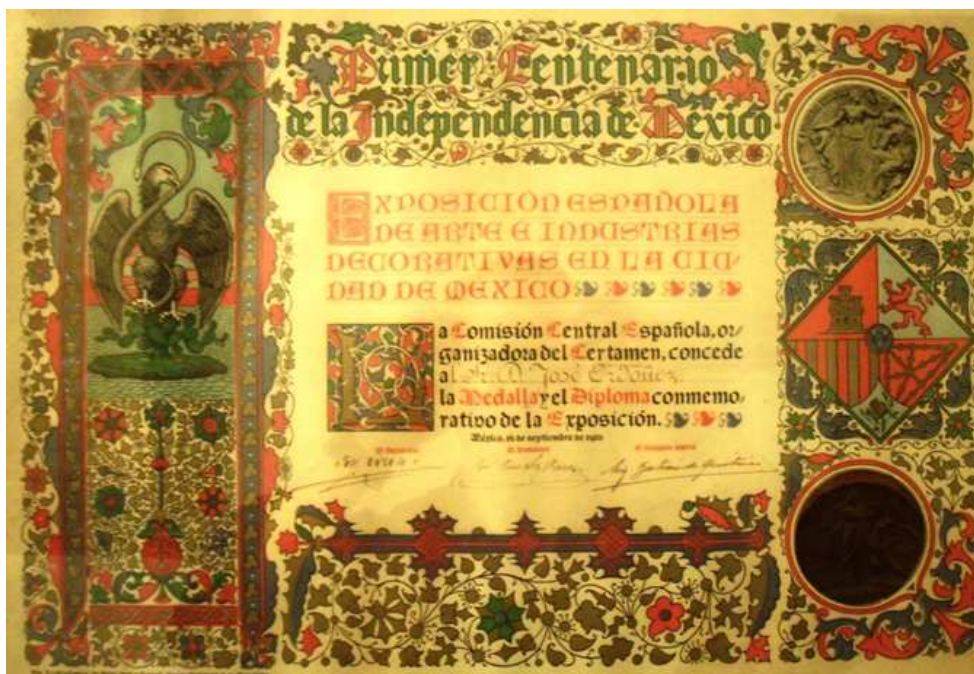 Primer Centenario
de la Independencia de México
EXPOSICIÓN ESPAÑOLA
DE ARTE E INDUSTRIAS
DECORATIVAS EN LA CIU-
DAD DE MEXICO
La Comisión Central Española, or-
ganizadora del Certamen, concede
al Sr. D. José Ordóñez
la Medalla y el Diploma conmemo-
rativo de la Exposición.
México, 16 de septiembre de 1910
El Secretario El Presidente